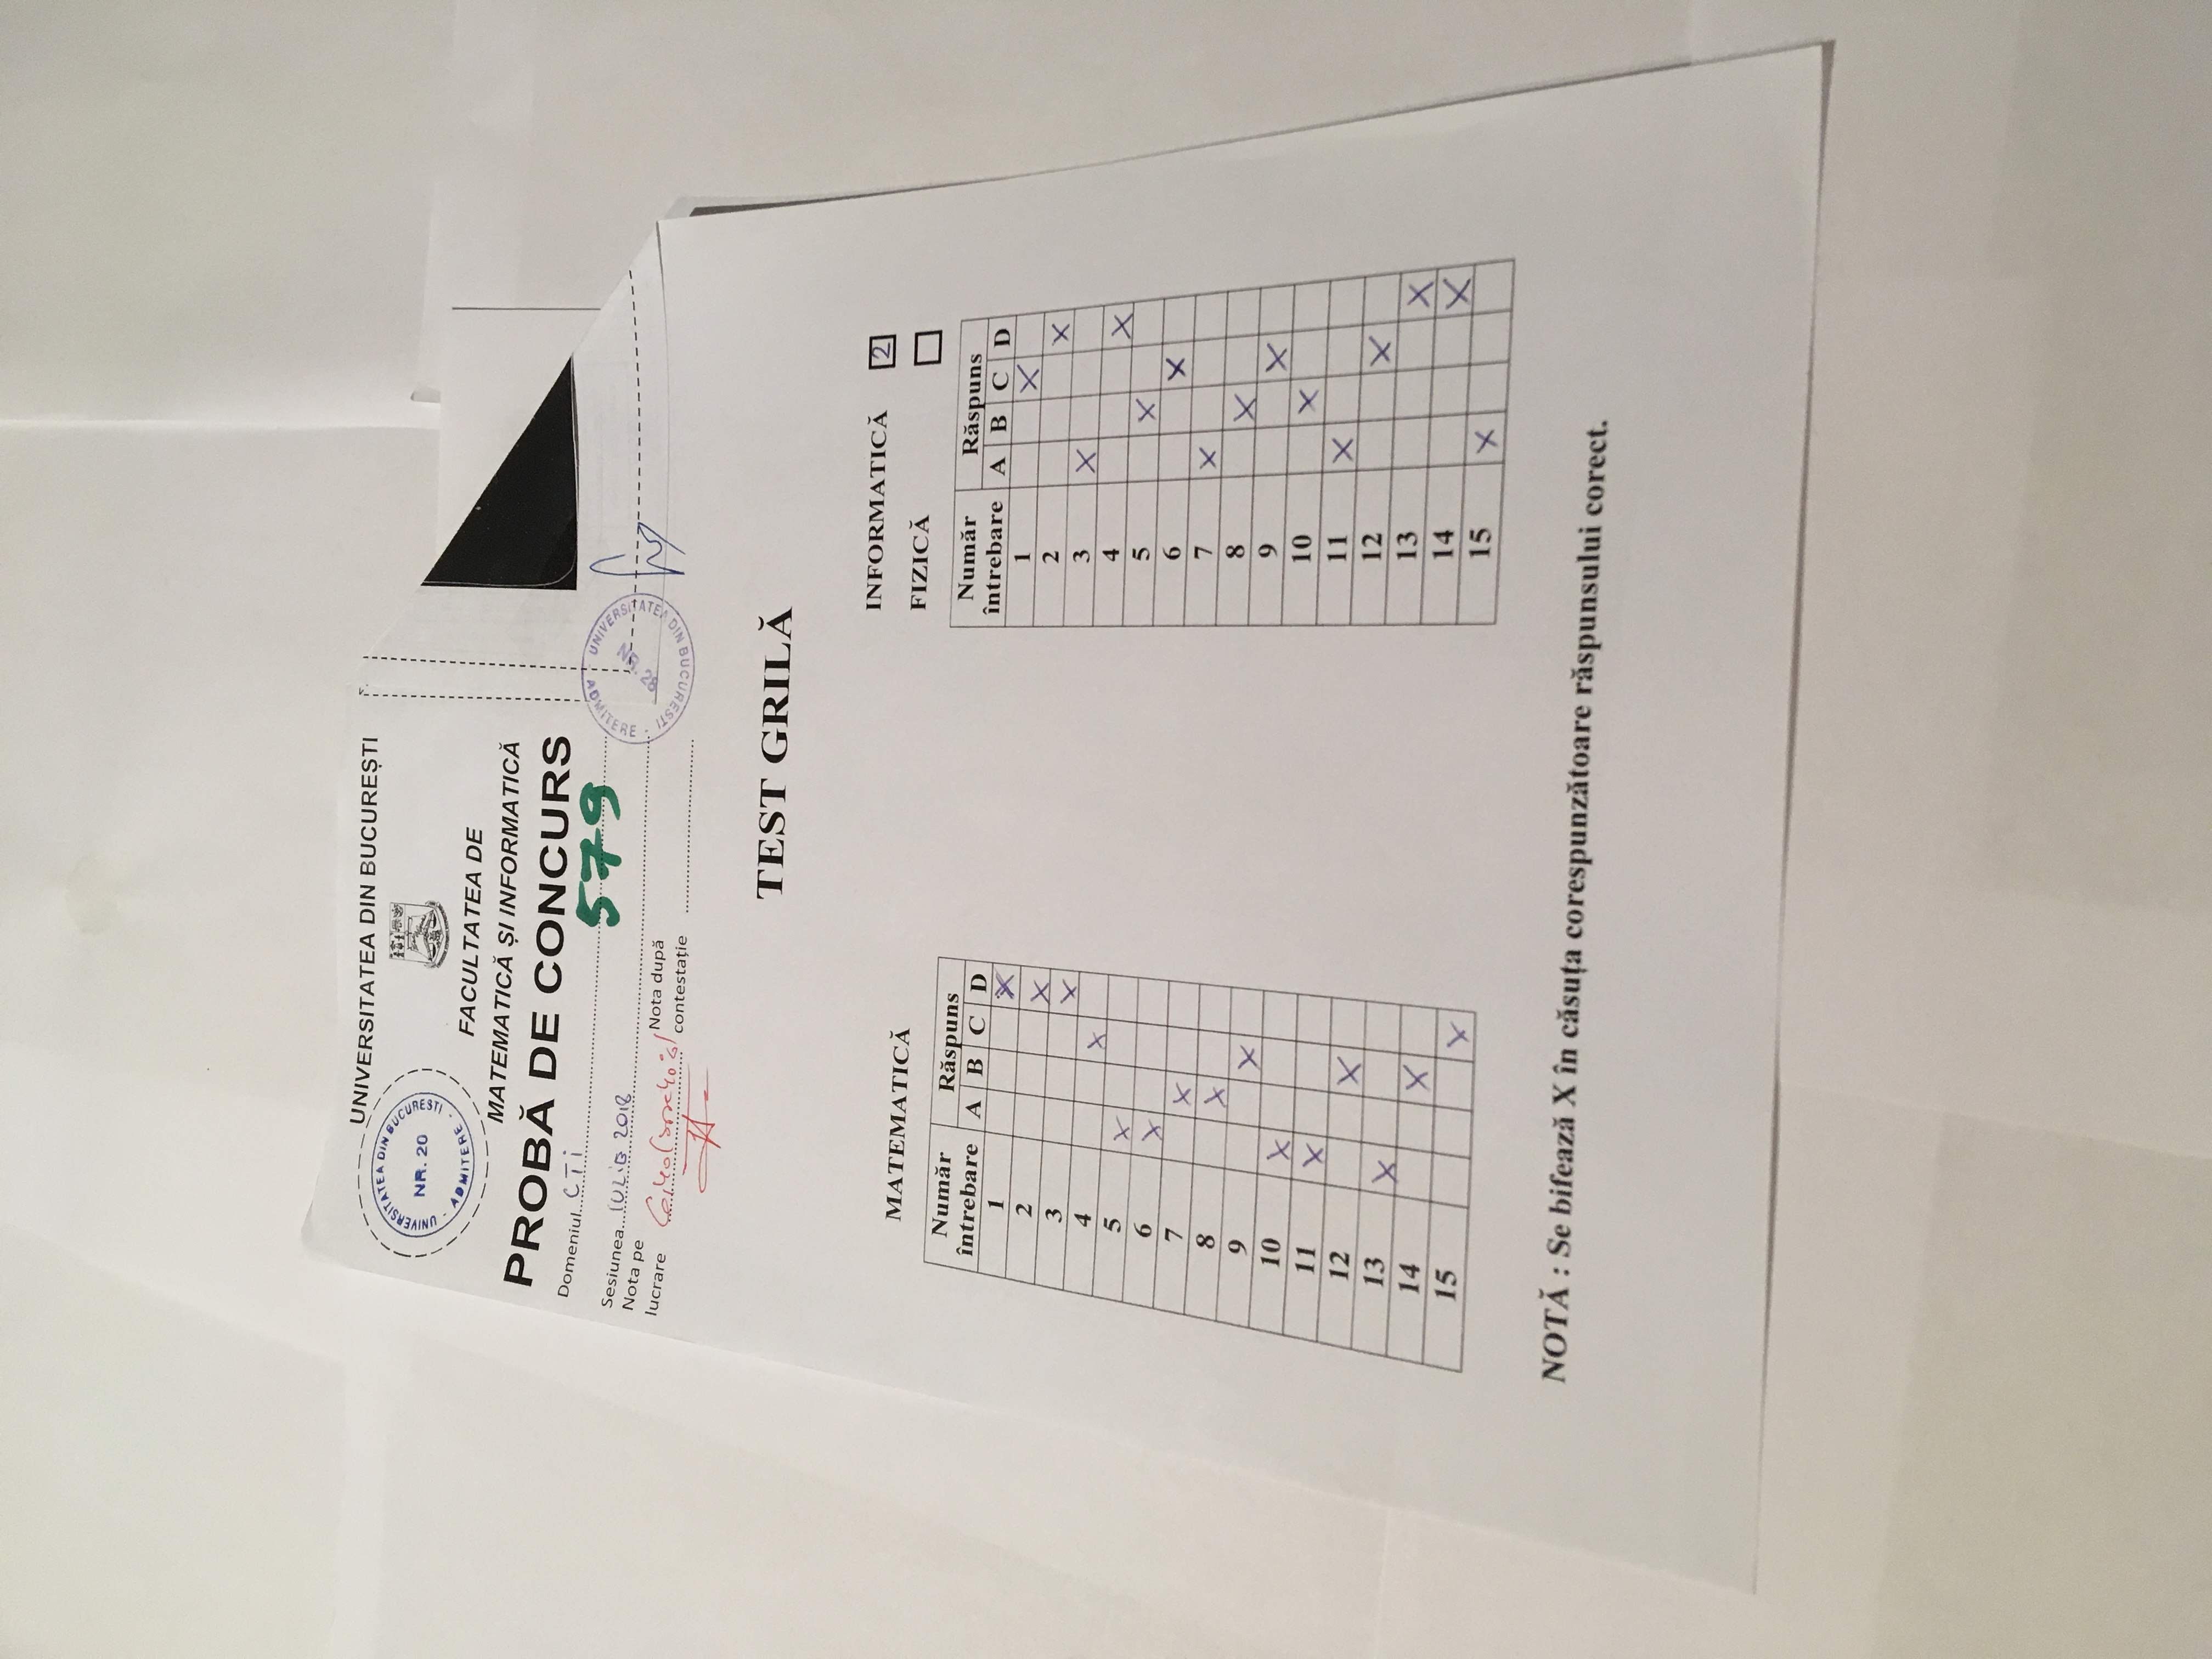 UNIVERSITATEA DIN BUCUREȘTI
UNIVERSITATEA DIN BUCURESTI
NR. 20
ADMITERE
FACULTATEA DE
MATEMATICĂ ȘI INFORMATICĂ
PROBĂ DE CONCURS
Domeniul CTi
579
Sesiunea IULIE 2018
Nota pe
lucrare
Nota după
contestație
UNIVERSITATEA DIN BUCURESTI
NR. 28
ADMITERE
TEST GRILĂ
MATEMATICĂ
Număr
întrebare
Răspuns
A B C D
1 X
2 X
3 X
4 X
5 X
6 X
7 X
8 X
9 X
10 X
11 X
12 X
13 X
14 X
15 X
INFORMATICĂ 2
FIZICĂ
Număr
întrebare
Răspuns
A B C D
1 X
2 X
3 X
4 X
5 X
6 X
7 X
8 X
9 X
10 X
11 X
12 X
13 X
14 X
15 X
NOTĂ : Se bifează X în căsuța corespunzătoare răspunsului corect.